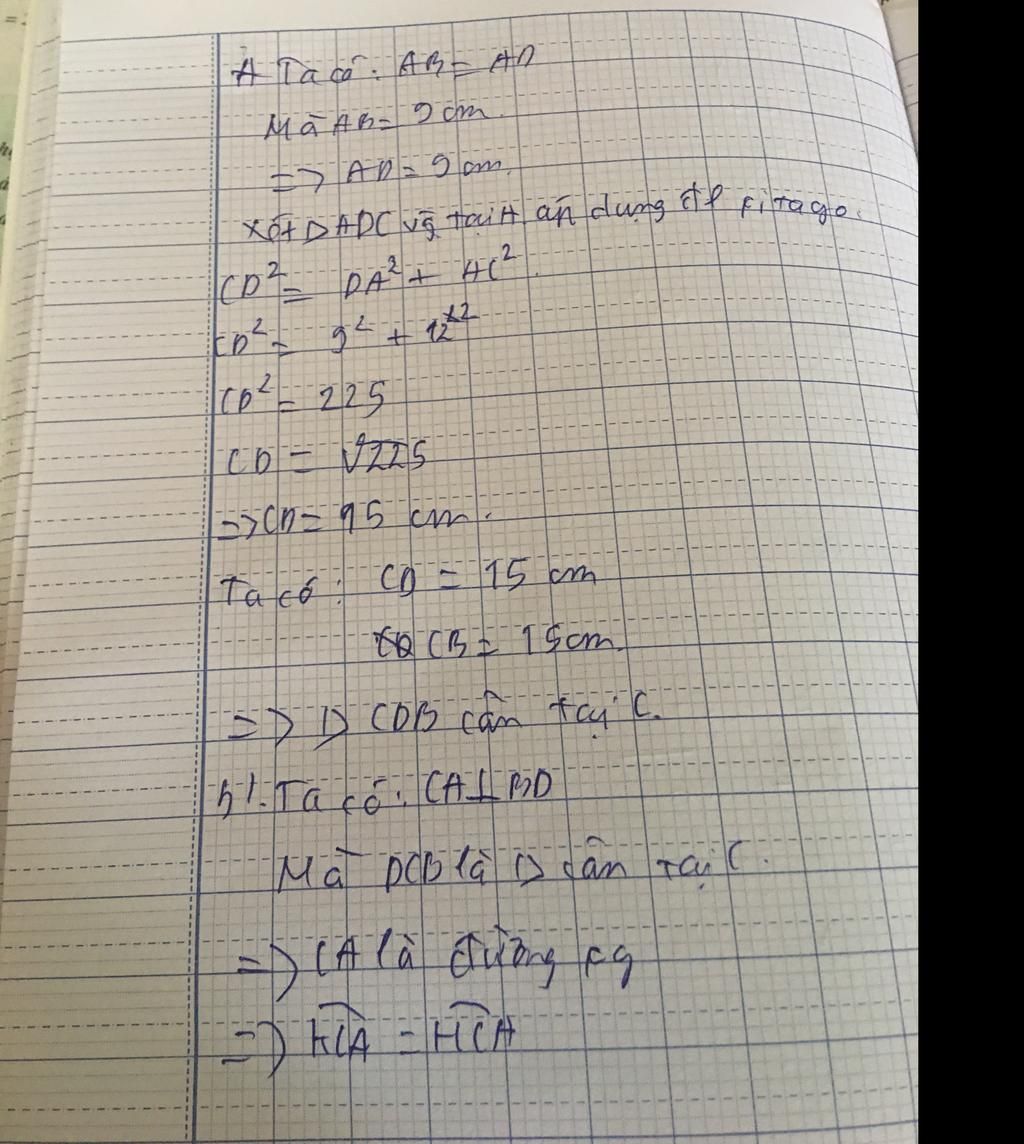 A Ta có: AB = AD
Mà AB = 9 cm.
=> AD = 9 cm.
xét △ ADC vg tại A áp dụng đl pitago.
CD² = DA² + AC².
CD² = 9² + 12²
CD² = 225
CD = √225
=> CD = 15 cm.
Ta có: CD = 15 cm
CB = 15cm.
=> △ CDB cân tại C.
b). Ta có: CA ⊥ BD
Mà DCB là △ cân tại C.
=> CA là đường pg
=> KCA = HCA